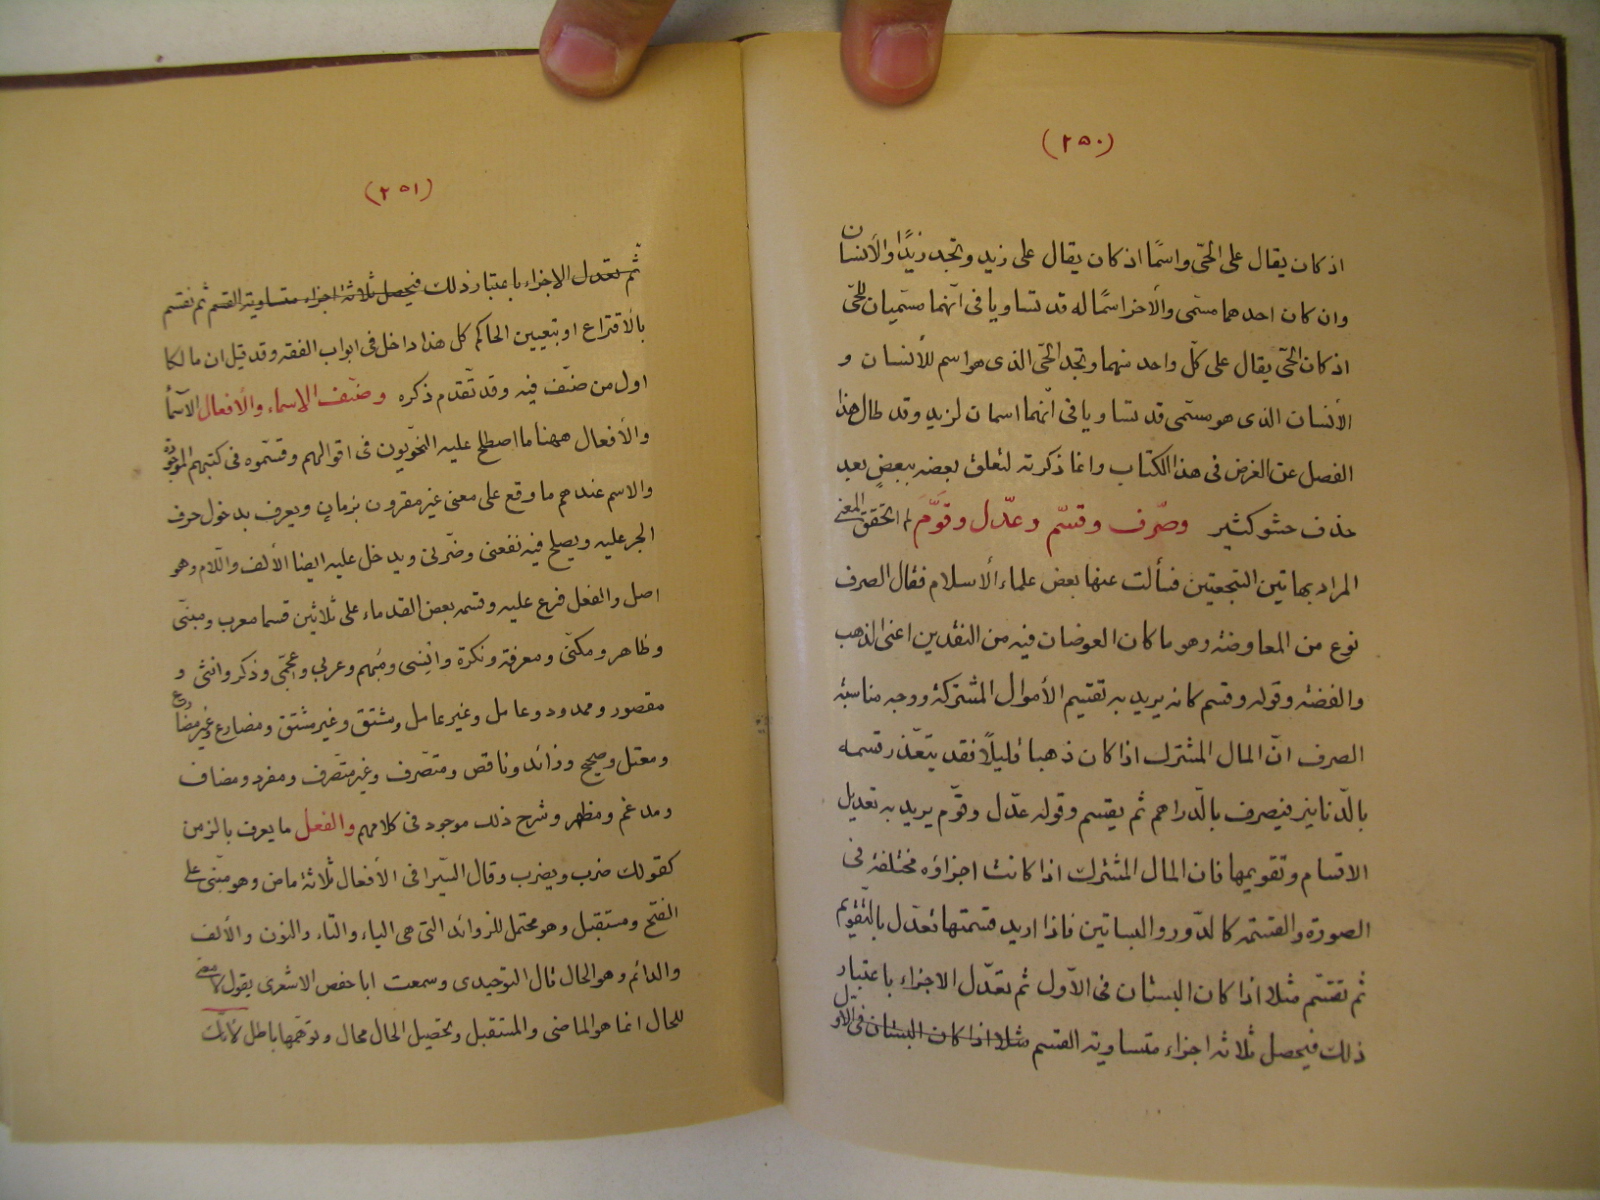 (٢٥٠)
اذ كان يقال على الحّى واسمًا اذ كان يقال على زيد وتجد زيدًا والأنسان
وان كان احدهما مسّمى والأخر اسمًا له قد تساويا فى انّهما مسّميان للحّى
اذ كان الحّى يقال على كلّ واحد منهما وتجد الحّى الذى هو اسم للأنسان و
الأنسان الذى هو مسّمى قد تساويا فى انّهما اسمان لزيد وقد طال هذا
الفصل عن الغرض فى هذا الكتاب وانما ذكرته لتعلق بعضه ببعضٍ بعد
حذف حشو كثير وصّرف وقسّم وعدّل وقَوَّمَ لم اتحقق المعنى
المراد بهاتين السّجعتين فسألت عنها بعض علماء الأسلام فقال الصرف
نوع من المعاوضة وهو ما كان العوضان فيه من النقدين اعنى الذهب
والفضة وقوله وقسم كانه يريد به تقسيم الأموال المشتركة ووجه مناسبة
الصرف انّ المال المشترك اذا كان ذهبا قليلًا فقد يتعّذر قسمه
بالّدنانير فيصرف بالّدراهم ثم يقسم وقوله عدّل وقوّم يريد به تعديل
الاقسام وتقويمها فان المال المشترك اذا كانت اجزاؤه مختلفة فى
الصورة والقسمة كالدّور والبساتين فاذا اريد قسمتها تعدّل بالتّقويم
ثم تقسم مثلا اذا كان البستان فى الأول ثم تعدّل الاجزاء باعتبار
ذلك فيحصل ثلاثة اجزاء متساوية القسم مثلا اذا كان البستان فى الاول
(٢٥١)
ثم تعدل الاجزاء باعتبار ذلك فيحصل ثلاثة اجزاء متساوية القسم ثم تقسم
بالأقتراع او بتعيين الحاكم كل هذا داخل فى ابواب الفقه وقد قيل ان مالكا
اول من صنّف فيه وقد تّقدم ذكره وصنّف الاسماء والأفعال الأسماُ
والأفعال ههنا ما اصطلح عليه النحّويون فى اقوالهم وقسّموه فى كتبهم الموجودة
والاسم عندهم ما وقع على معنى غير مقرون بزمان ويعرف بدخول حرف
الجر عليه ويصلح فيه نفعنى وضّرنى ويدخل عليه ايضا الألف والّلام وهو
اصل والفعل فرع عليه وقسمه بعض القدماء على ثلاثين قسما معرب ومبنّى
وظاهر ومكنّى ومعرفة ونكرة وانيسى ومُبهم وعربى وعجمّى وذكر وانثى و
مقصور وممدود وعامل وغير عامل ومشتق وغير مشتق ومضارع وغير مضارع
ومعتل وصحيح وزائد وناقص ومتصّرف وغير متصّرف ومفرد ومضاف
ومدغم ومظهر وشرح ذلك موجود فى كلامهم والفعل ما يعرف بالزمن
كقولك ضرب ويضرب وقال السّيرافى الأفعال ثلاثة ماض وهو مبّنى على
الفتح ومستقبل وهو محتمل للزوائد التى هى الياء والتاء والنون والألف
والدائم وهو الحال قال التوحيدى وسمعت ابا حفص الاشعرى يقول لا معنى
للحال انما هو الماضى والمستقبل وتحصيل الحال محال وتوّهمها باطل لأنك